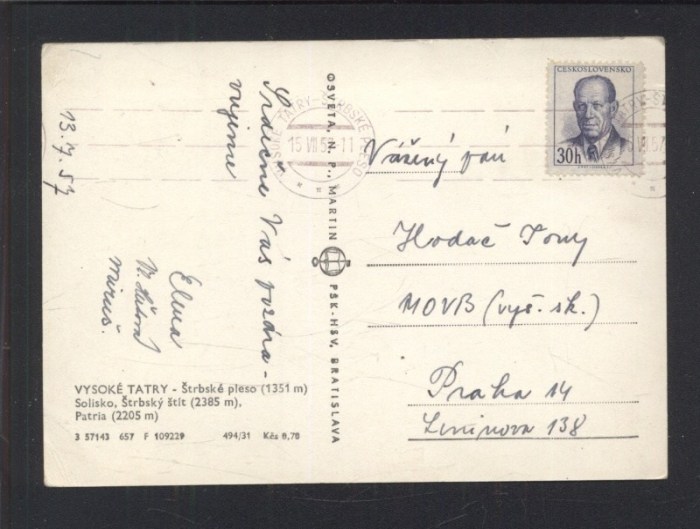 13.7.57
Srdečne Vás pozdra-
vujeme
Elena
OSVETA, N. P., MARTIN
PSK-HSV, BRATISLAVA
VYSOKÉ TATRY-ŠTRBSKÉ PLESO
15 VII 57-11
ČESKOSLOVENSKO
30h
Vážený pán
Hodač Tony
MOVB (vyš. sk.)
Praha 14
Leninova 138
VYSOKÉ TATRY - Štrbské pleso (1351 m)
Solisko, Štrbský štít (2385 m),
Patria (2205 m)
3 57143 657 F 109229 494/31 Kčs 0,70